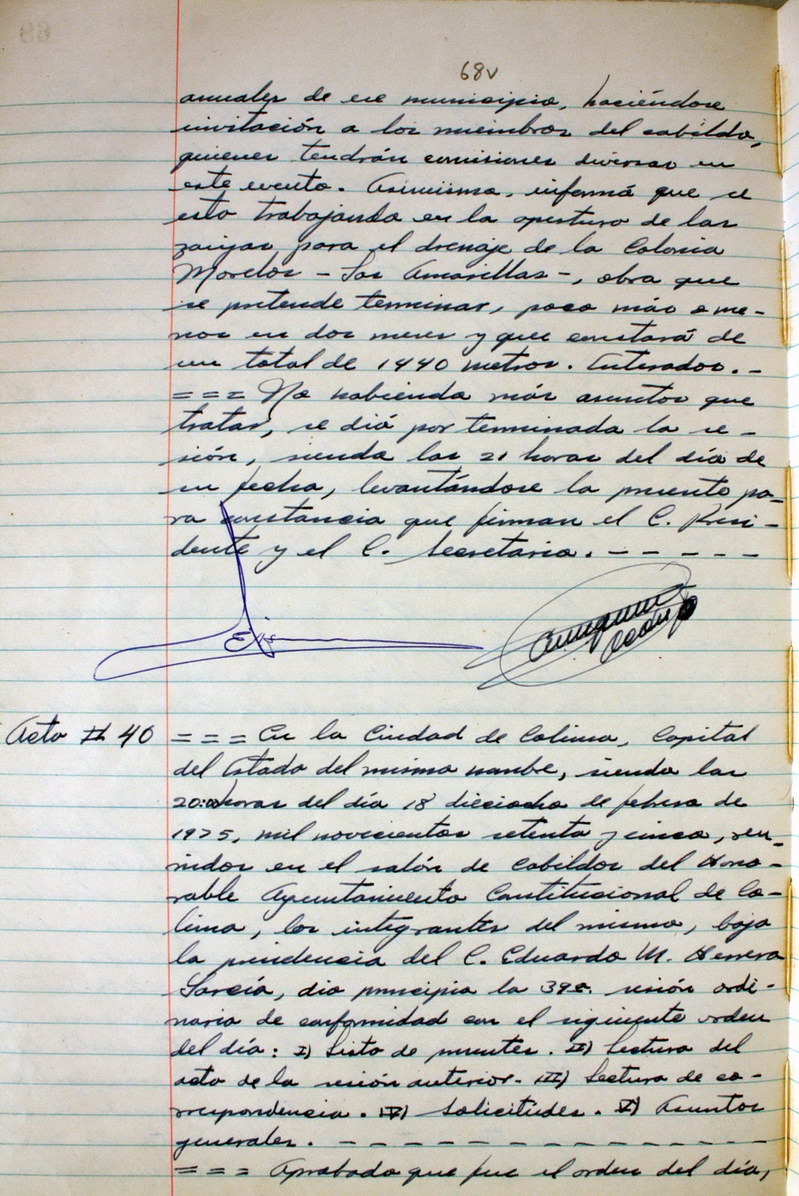 68v
anuales de ese municipio, haciéndose
invitación a los miembros del cabildo,
quienes tendrán comisiones diversas en
este evento. Asimismo, informó que se
esta trabajando en la apertura de las
zanjas para el drenaje de la Colonia
Morelos - Las Amarillas -, obra que
se pretende terminar, poco más o me-
nos en dos meses y que constará de
un total de 1440 metros. Enterados. -
= = = No habiendo más asuntos que
tratar, se dió por terminada la se-
sión, siendo las 21 horas del día de
su fecha, levantándose la presente pa-
ra constancia que firman el C. Presi-
dente y el C. Secretario. - - - - -
Acta # 40 = = = En la Ciudad de Colima, Capital
del Estado del mismo nombe, siendo las
20:00 horas del día 18 dieciocho de febrero de
1975, mil novecientos setenta y cinco, reu-
nidos en el salón de Cabildos del Hono-
rable Ayuntamiento Constitucional de Co-
lima, los integrantes del mismo, bajo
la presidencia del C. Eduardo M. Herrera
García, dio principio la 39a. sesión ordi-
naria de conformidad con el siguiente orden
del día: I) Lista de presentes. II) Lectura del
acta de la sesión anterior. III) Lectura de co-
rrespondencia. IV) Solicitudes. V) Asuntos
generales. - - - - - - - - - - - - - - -
= = = Aprobado que fue el orden del día,